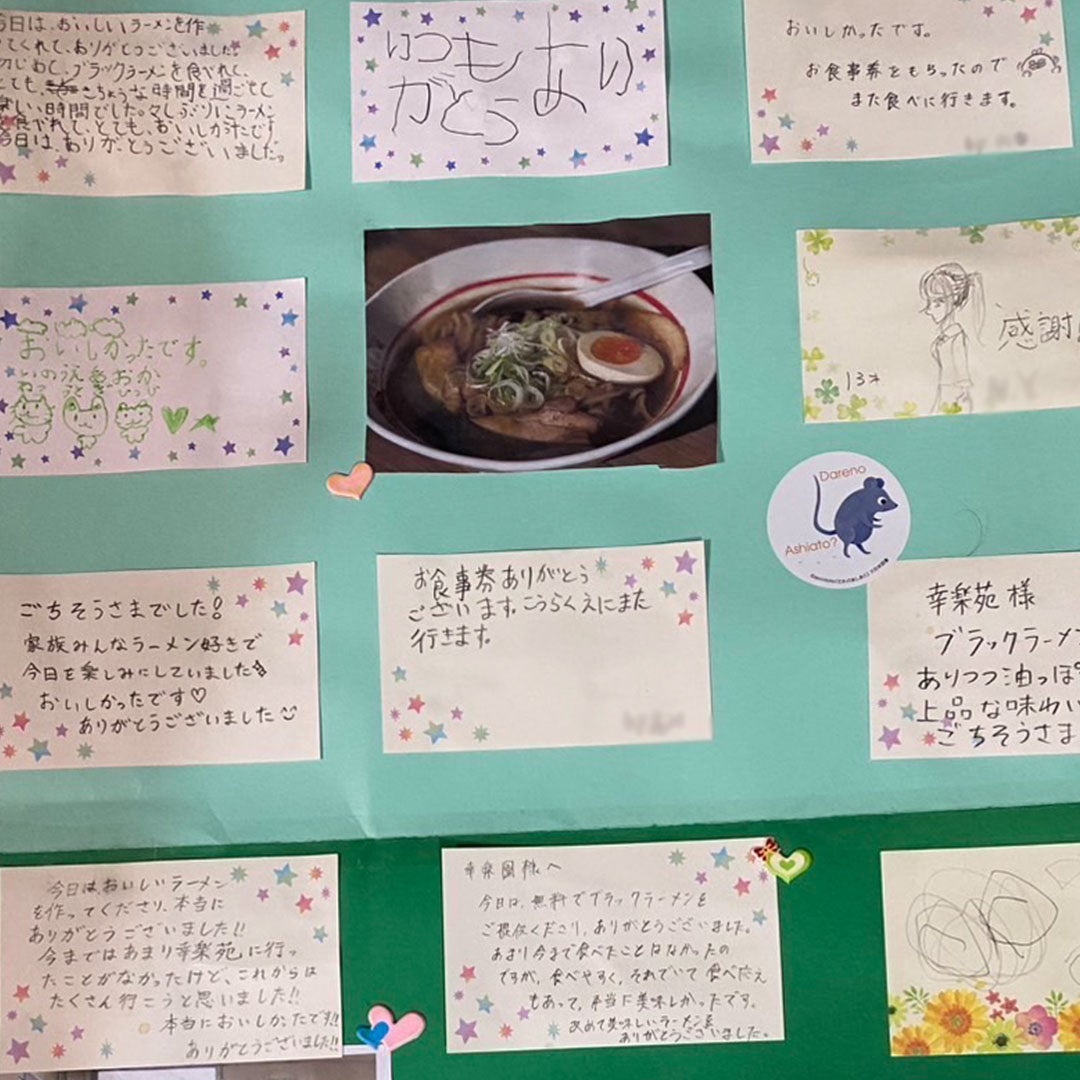 今日は、おいしいラーメンを作
ってくれて、ありがとうございました!
ブラックラーメンを食べれて、
とても、ごちそうな時間を過ごせて
時間でした。久しぶりにラーメン
を食べれて、とても、おいしかったです
今日は、ありがとうございました。
いつもあり
がとう
おいしかったです。
お食事券をもらったので
また食べに行きます。
おいしかったです。
感謝
13才
Dareno
Ashiato?
ごちそうさまでした!
家族みんなラーメン好きで
今日を楽しみにしていました
おいしかったです♡
ありがとうございました
お食事券ありがとう
ございます。こうらくえにまた
行きます。
幸楽苑様
ブラックラーメン
ありつつ油っぽ
上品な味わい
ごちそうさま
今日はおいしいラーメン
を作ってくださり、本当に
ありがとうございました!!
今まではあまり幸楽苑に行っ
たことがなかったけど、これからは
たくさん行こうと思いました!!
本当においしかったです!!
ありがとうございました!!
幸楽園様へ
今日は、無料でブラックラーメンを
ご提供くださり、ありがとうございました。
あまり今まで食べたことはなかったの
ですが、食べやすく、それでいて食べ応え
もあって、本当に美味しかったです。
改めて美味しいラーメンを
ありがとうございました。